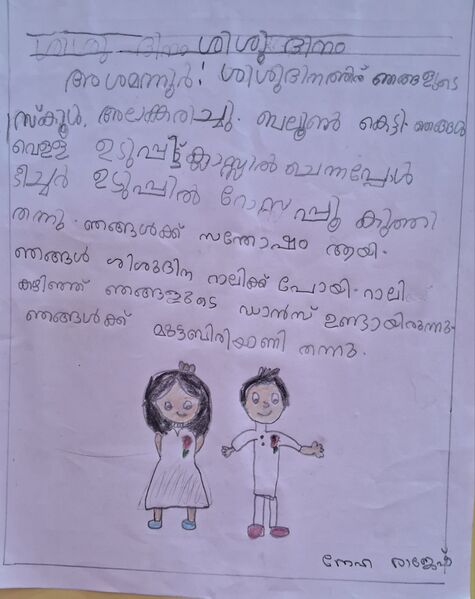 ശിശു ദിനം ശിശു ദിനം
അശമന്നൂർ! ശിശുദിനത്തിന് ഞങ്ങളുടെ
സ്കൂൾ. അലങ്കരിച്ചു. ബലൂൺ കെട്ടി. ഞങ്ങൾ
വെള്ള ഉടുപ്പിട്ട് ക്ലാസ്സിൽ ചെന്നപ്പോൾ
ടീച്ചർ ഉടുപ്പിൽ റോസാപ്പൂ കുത്തി
തന്നു. ഞങ്ങൾക്ക് സന്തോഷം ആയി.
ഞങ്ങൾ ശിശുദിന റാലിക്ക് പോയി. റാലി
കഴിഞ്ഞ് ഞങ്ങളുടെ ഡാൻസ് ഉണ്ടായിരുന്നു.
ഞങ്ങൾക്ക് മുട്ടബിരിയാണി തന്നു.
സ്നേഹ രാജേഷ്